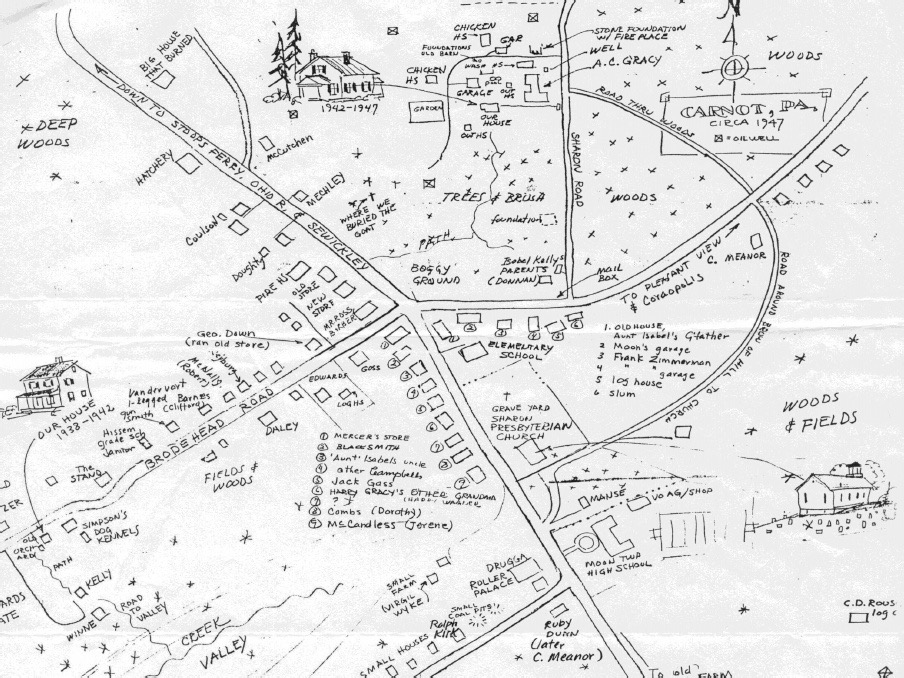 BIG HOUSE
THAT BURNED
DOWN TO STOOPS FERRY, OHIO R.
SEWICKLEY
DEEP
WOODS
HATCHERY
McCutchen
MECHLEY
Coulson
Doughty
1942-1947
CHICKEN
HS
GAR
FOUNDATIONS
OLD BARN
CHICKEN
HS
WASH HS
GARAGE
OUT
HS
GARDEN
OUR
HOUSE
OUTHS
STONE FOUNDATION
W/ FIRE PLACE
WELL
A.C. GRACY
WOODS
CARNOT, PA.
CIRCA 1947
= OIL WELL
ROAD THRU WOODS
SHARON ROAD
WOODS
TREES & BRUSH
foundation
WHERE WE
BURIED THE
GOAT
PATH
BOGGY
GROUND
Bobel Kelly's
PARENTS
(DONNAN)
MAIL
BOX
TO PLEASANT VIEW
& Coraopolis
C. MEANOR
TO CHURCH
FIRE HS
OLD
STORE
NEW
STORE
MR ROSS
BARBER
Geo. Down
(ran old store)
ELEMENTARY
SCHOOL
1. OLD HOUSE,
Aunt Isabel's G'father
2 Moon's garage
3 Frank Zimmerman
4 " " garage
5 log house
6 slum
WOODS
& FIELDS
GOSS
EDWARDS
LOG HS
McNally
(Robert)
Vandervort
1-legged Barnes
(Clifford)
gun
smith
Hissem
grade sch
Janitor
OUR HOUSE
1938-1942
BRODEHEAD ROAD
DALEY
FIELDS &
WOODS
The
STAND
SIMPSON'S
DOG
KENNELS
OLD
ORCH
ARD
PATH
KELLY
WINNE
ROAD
TO
VALLEY
CREEK
VALLEY
GRAVE YARD
SHARON
PRESBYTERIAN
CHURCH
1 MERCER'S STORE
2 BLACKSMITH
3 'Aunt' Isabel's uncle
4 other Campbells
5 Jack Gass
6 HARRY GRACY'S OTHER GRANDMA
7 ? Y
8 Combs (Dorothy)
9 McCandless (Jerene)
MANSE
VO AG/SHOP
MOON TWP
HIGH SCHOOL
DRUGGA
ROLLER
PALACE
SMALL
FARM
(VIRGIL
WYKE)
SMALL
COAL PITS
Ralph
Kirk
SMALL HOUSES
RUBY
DUNN
(later
C. Meanor)
C.D. ROUS
log c
To old
FARM